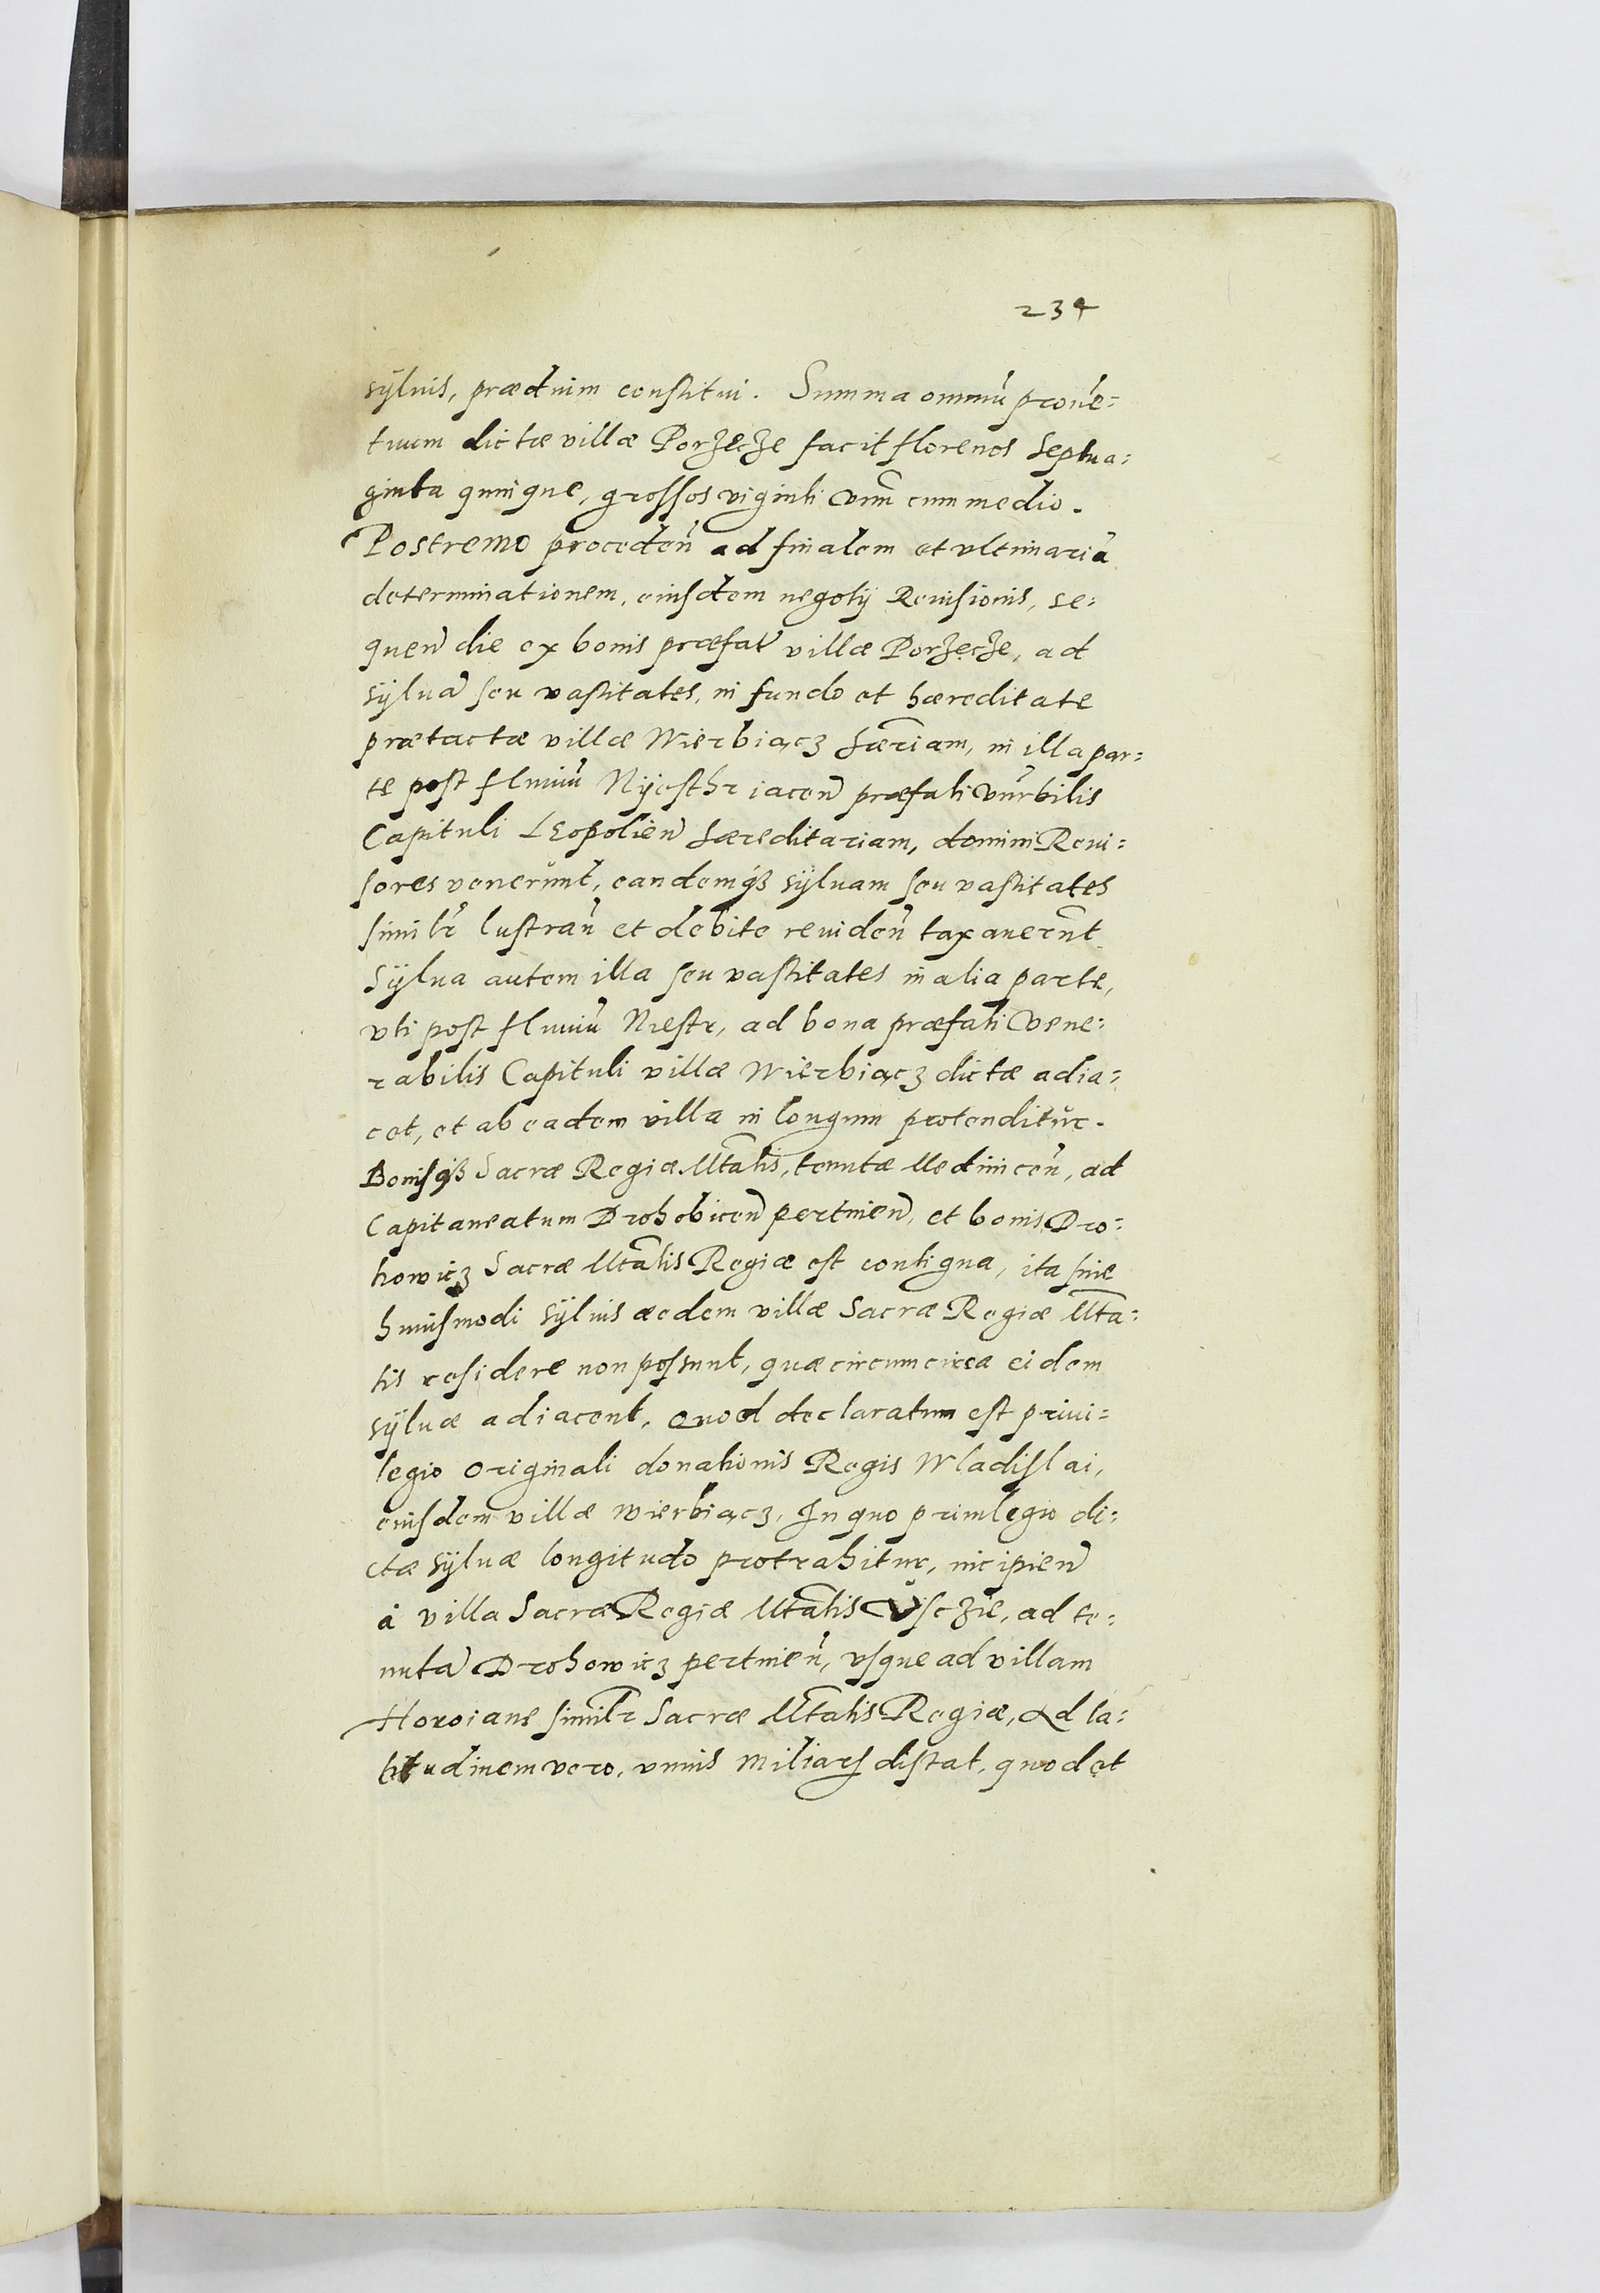 234
sÿluis, prædium constitui. Summa omniũ prouẽ=
tuum dictæ villæ Porzecze facit florenos septua=
ginta quinque, grossos viginti vnũ cum medio.
Postremo proceden̄ ad finalem et vltimariã
determinationem, eiusdem negotÿ Reuisionis, se=
quen̄ die ex bonis præfat̄ villæ Porzecze, ad
sÿluã seu vastitates, in fundo et hæreditate
prætactæ villæ Wierbiącz særiam, in illa par=
te post fluuiũ Nÿesthr iacen̄ præfati Vnrbilis
Capituli Leopolien̄ hæreditariam, domini Reui=
sores venerunt, eandemqß sÿluam seu vastitates
similr̄ lustran̄ et debite reuiden̄ taxauerñt
Sÿlua autem illa seu vastitates in alia parte,
vti post fluuiũ Niestr, ad bona præfati Vene=
rabilis Capituli villæ Wierbiącz dictæ adia=
cet, et ab eadem villa in longum protenditur.
Bonisqß Sacræ Regiæ Mtatis, tenutæ Medinicen̄, ad
Capitaneatum Drohobicen̄ pertinen̄, et bonis Dro=
howicz Sacræ Mtatis Regiæ est contigua, ita sine
huiusmodi sÿluis ædem villæ Sacræ Regiæ Mta=
tis residere non possunt, quæ circumcirca eidem
sÿluæ adiacent, Quod declaratum est priui=
legio originali donationis Regis Wladislai,
eiusdem villæ wierbiącz, In quo priuilegio di=
ctæ sÿluæ longitudo protrahitur, incipien̄
à villa Sacræ Regiæ Mtatis Vsczie, ad te=
nutã Drohowicz pertinen̄, vsque ad villam
Horoiane similr̄ Sacræ Mtatis Regiæ, Ad la=
titudinem vero, vnius miliars distat, quod et